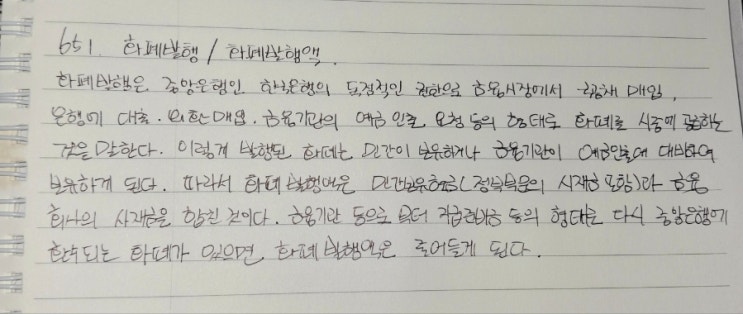 651. 화폐발행 / 화폐발행액.
화폐발행은 중앙은행인 한국은행의 독점적인 권한으로 금융시장에서 국공채 매입,
은행에 대출. 외환매입. 금융기관의 예금 인출 요청 등의 형태로 화폐를 시중에 공급하는
것을 말한다. 이렇게 발행된 화폐는 민간이 보유하거나 금융기관이 예금인출에 대비하여
보유하게 된다. 따라서 화폐 발행액은 민간보유현금(정부부문의 시재금 포함)과 금융
회사의 시재금을 합친 것이다. 금융기관 등으로 부터 지급준비금 등의 형태로 다시 중앙은행에
환수되는 화폐가 있으면 화폐 발행액은 줄어들게 된다.